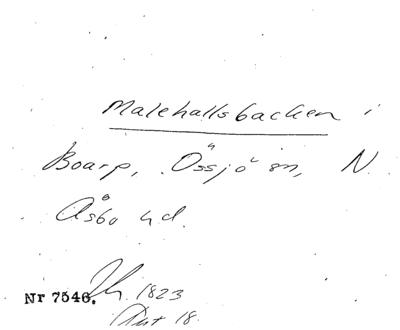 Malehallsbacken i
Boarp, Össjö sn, N.
Åsbo hd.
Nr 7546. 1823
18.